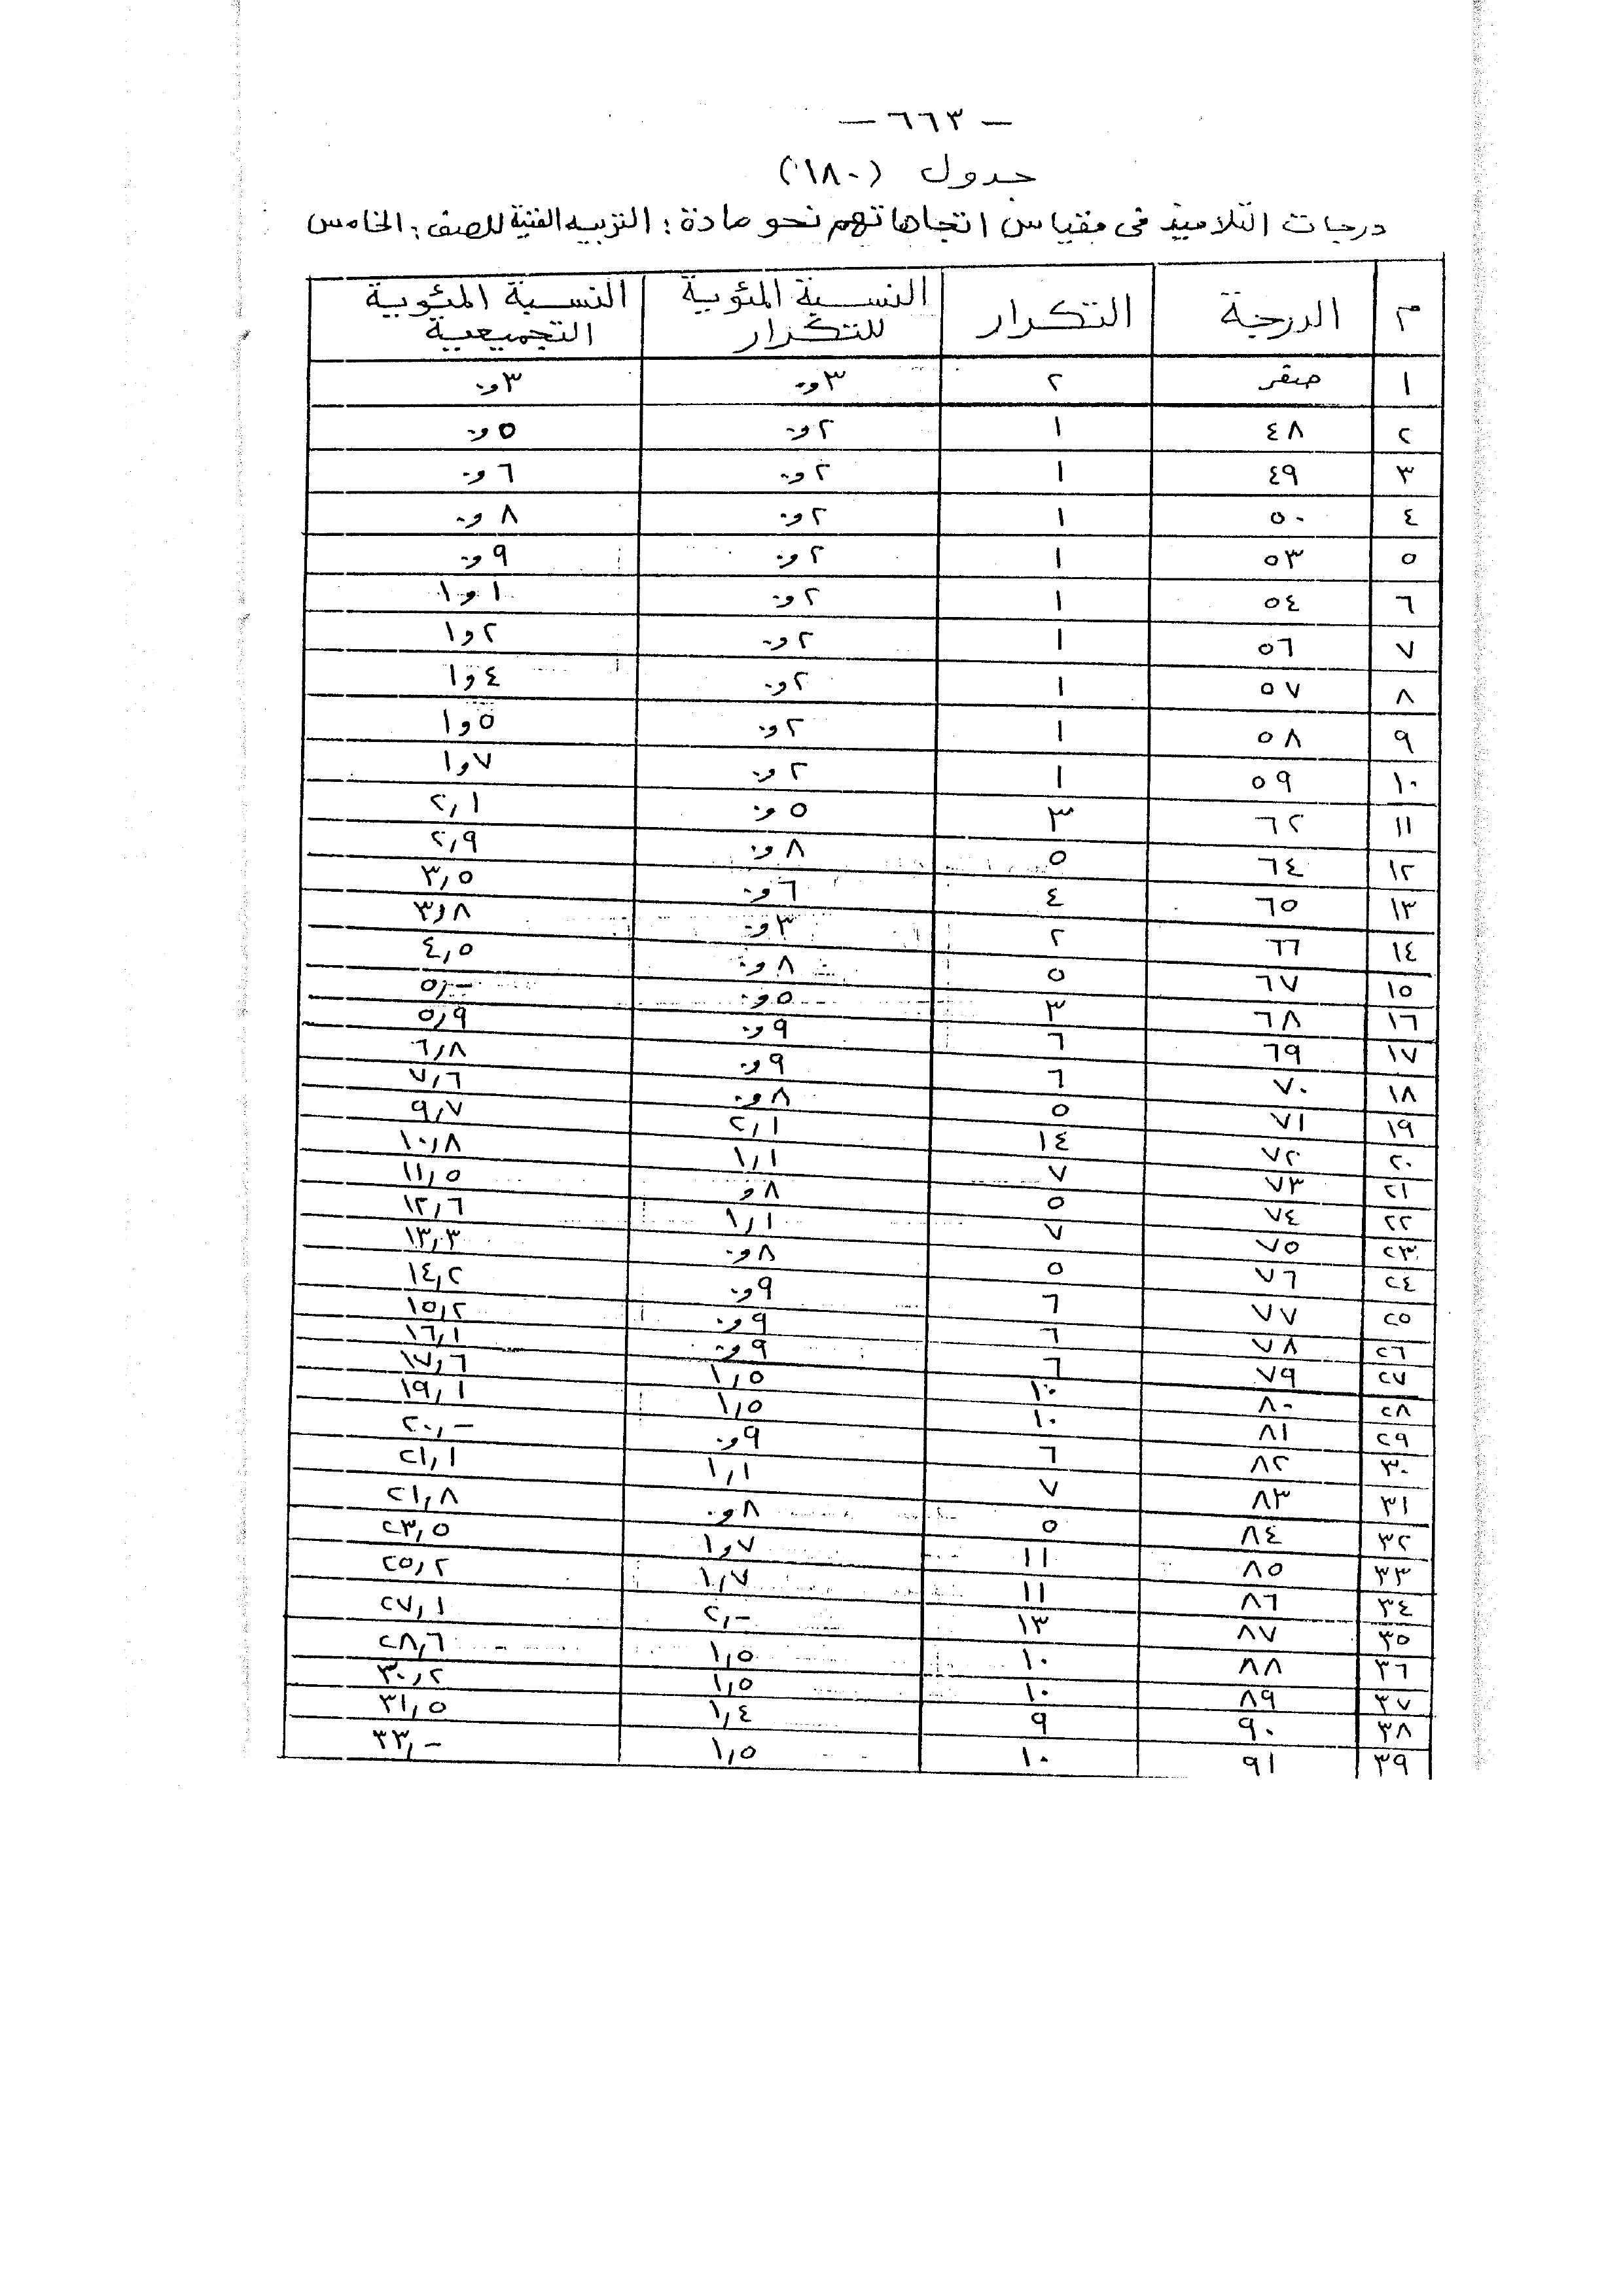 — ٦٦٣ —
جدول (١٨٠)
درجات التلاميذ فى مقياس اتجاهاتهم نحو مادة : التربيه الفنية للصف : الخامس
م الدرجة التكرار النسبة المئوية للتكرار النسبة المئوية التجميعية
١ صفر ٢ ٣و٠ ٣و٠
٢ ٤٨ ١ ٢و٠ ٥و٠
٣ ٤٩ ١ ٢و٠ ٦و٠
٤ ٥٠ ١ ٢و٠ ٨و٠
٥ ٥٣ ١ ٢و٠ ٩و٠
٦ ٥٤ ١ ٢و٠ ١و١
٧ ٥٦ ١ ٢و٠ ٢و١
٨ ٥٧ ١ ٢و٠ ٤و١
٩ ٥٨ ١ ٢و٠ ٥و١
١٠ ٥٩ ١ ٢و٠ ٧و١
١١ ٦٢ ٣ ٥و٠ ٢,١
١٢ ٦٤ ٥ ٨و٠ ٢,٩
١٣ ٦٥ ٤ ٦و٠ ٣,٥
١٤ ٦٦ ٢ ٣و٠ ٣,٨
١٥ ٦٧ ٥ ٨و٠ ٤,٥
١٦ ٦٨ ٣ ٥و٠ ٥,-
١٧ ٦٩ ٦ ٩و٠ ٥,٩
١٨ ٧٠ ٦ ٩و٠ ٦,٨
١٩ ٧١ ٥ ٨و٠ ٧,٦
٢٠ ٧٢ ١٤ ٢,١ ٩,٧
٢١ ٧٣ ٧ ١,١ ١٠,٨
٢٢ ٧٤ ٥ ٨و ١١,٥
٢٣ ٧٥ ٧ ١,١ ١٢,٦
٢٤ ٧٦ ٥ ٨و٠ ١٣,٣
٢٥ ٧٧ ٦ ٩و٠ ١٤,٢
٢٦ ٧٨ ٦ ٩و٠ ١٥,٢
٢٧ ٧٩ ٦ ٩و٠ ١٦,١
٢٨ ٨٠ ١٠ ١,٥ ١٧,٦
٢٩ ٨١ ١٠ ١,٥ ١٩,١
٣٠ ٨٢ ٦ ٩و٠ ٢٠,-
٣١ ٨٣ ٧ ١,١ ٢١,١
٣٢ ٨٤ ٥ ٨و٠ ٢١,٨
٣٣ ٨٥ ١١ ٧و١ ٢٣,٥
٣٤ ٨٦ ١١ ١,٧ ٢٥,٢
٣٥ ٨٧ ١٣ ٢,- ٢٧,١
٣٦ ٨٨ ١٠ ١,٥ ٢٨,٦
٣٧ ٨٩ ١٠ ١,٥ ٣٠,٢
٣٨ ٩٠ ٩ ١,٤ ٣١,٥
٣٩ ٩١ ١٠ ١,٥ ٣٣,-